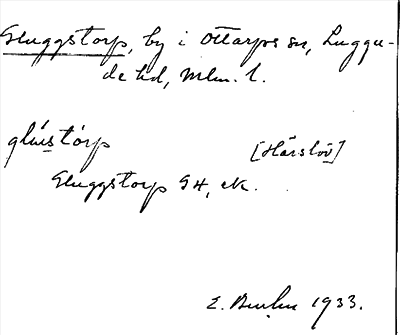 Gluggstorp, by i Ottarps sn, Luggu-
de hd, Mlm. l.
glu̇stȯrp [Härslöv]
Gluggstorp GK, ek.
E. 1933.